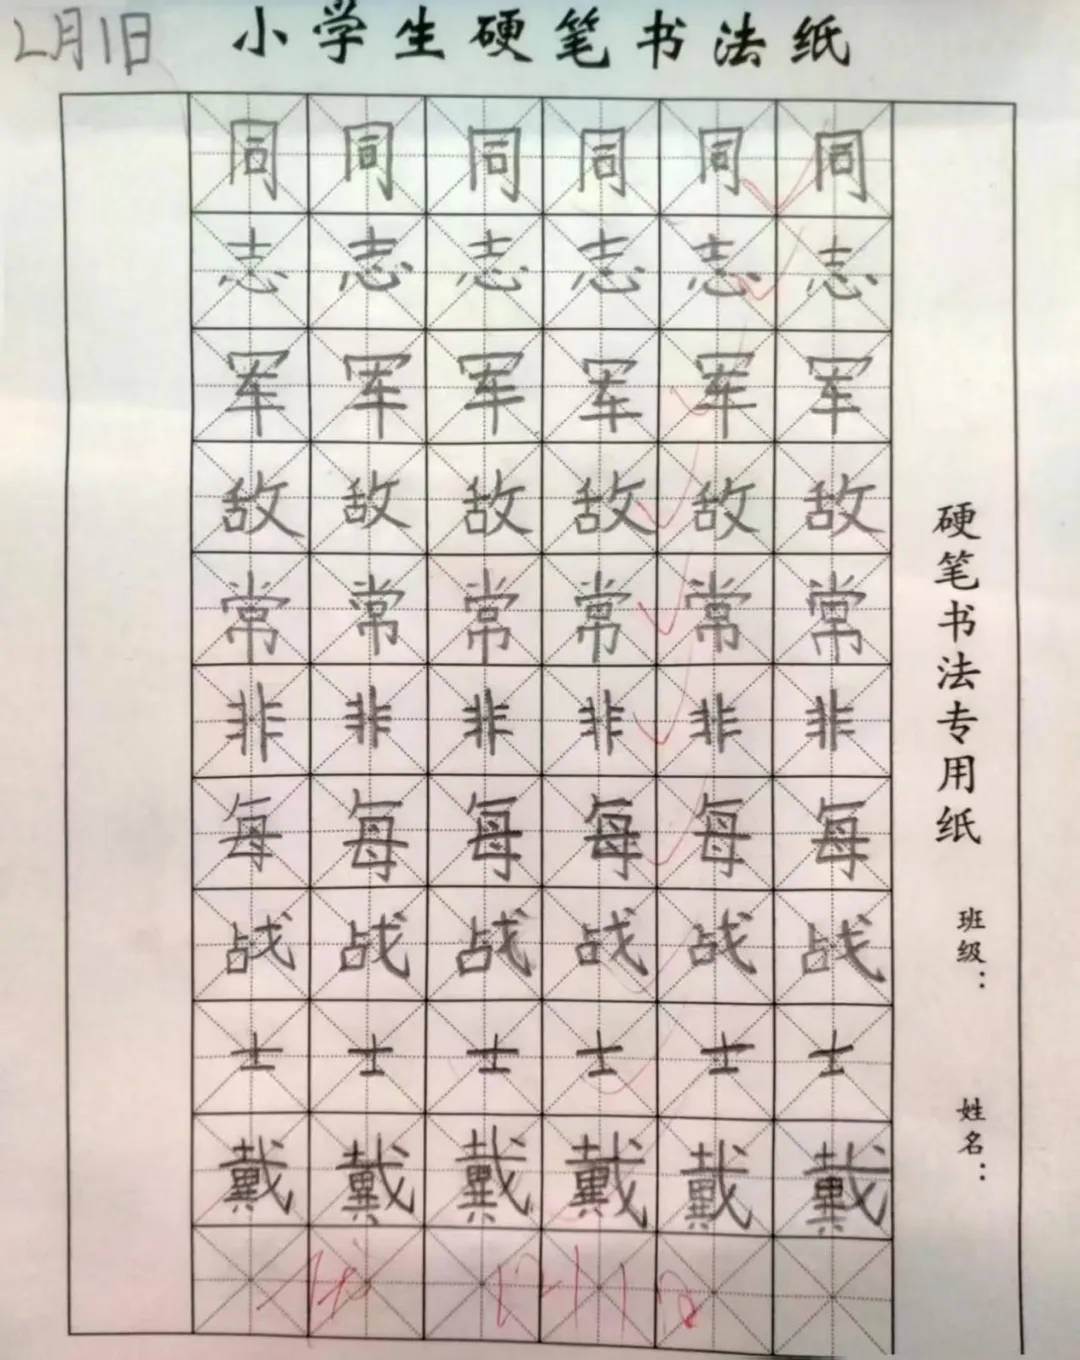 2月1日
小学生硬笔书法纸
同同同同同同
志志志志志志
军军军军军军
敌敌敌敌敌敌
常常常常常常
非非非非非非
每每每每每每
战战战战战战
士士士士士士
戴戴戴戴戴戴
硬笔书法专用纸
班级：
姓名：